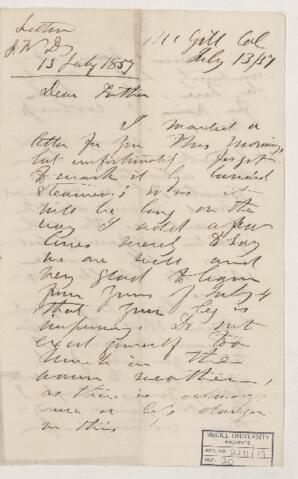 Letter
J W D
13 July 1857
McGill Col
July 13/57
Dear Father
I mailed a
letter for you this morning,
but unfortunately forgot
to mark it by Cunard
Steamer; as it
will be long on the
way I add a few
lines merely to say
we are well and
very glad to learn
from yours of July 4
that your leg is
improving. Do not
exert yourself too
much in the
warm weather,
as there is always
more or less danger
in this
McGILL UNIVERSITY
ARCHIVES
ACC. NO.
REF.